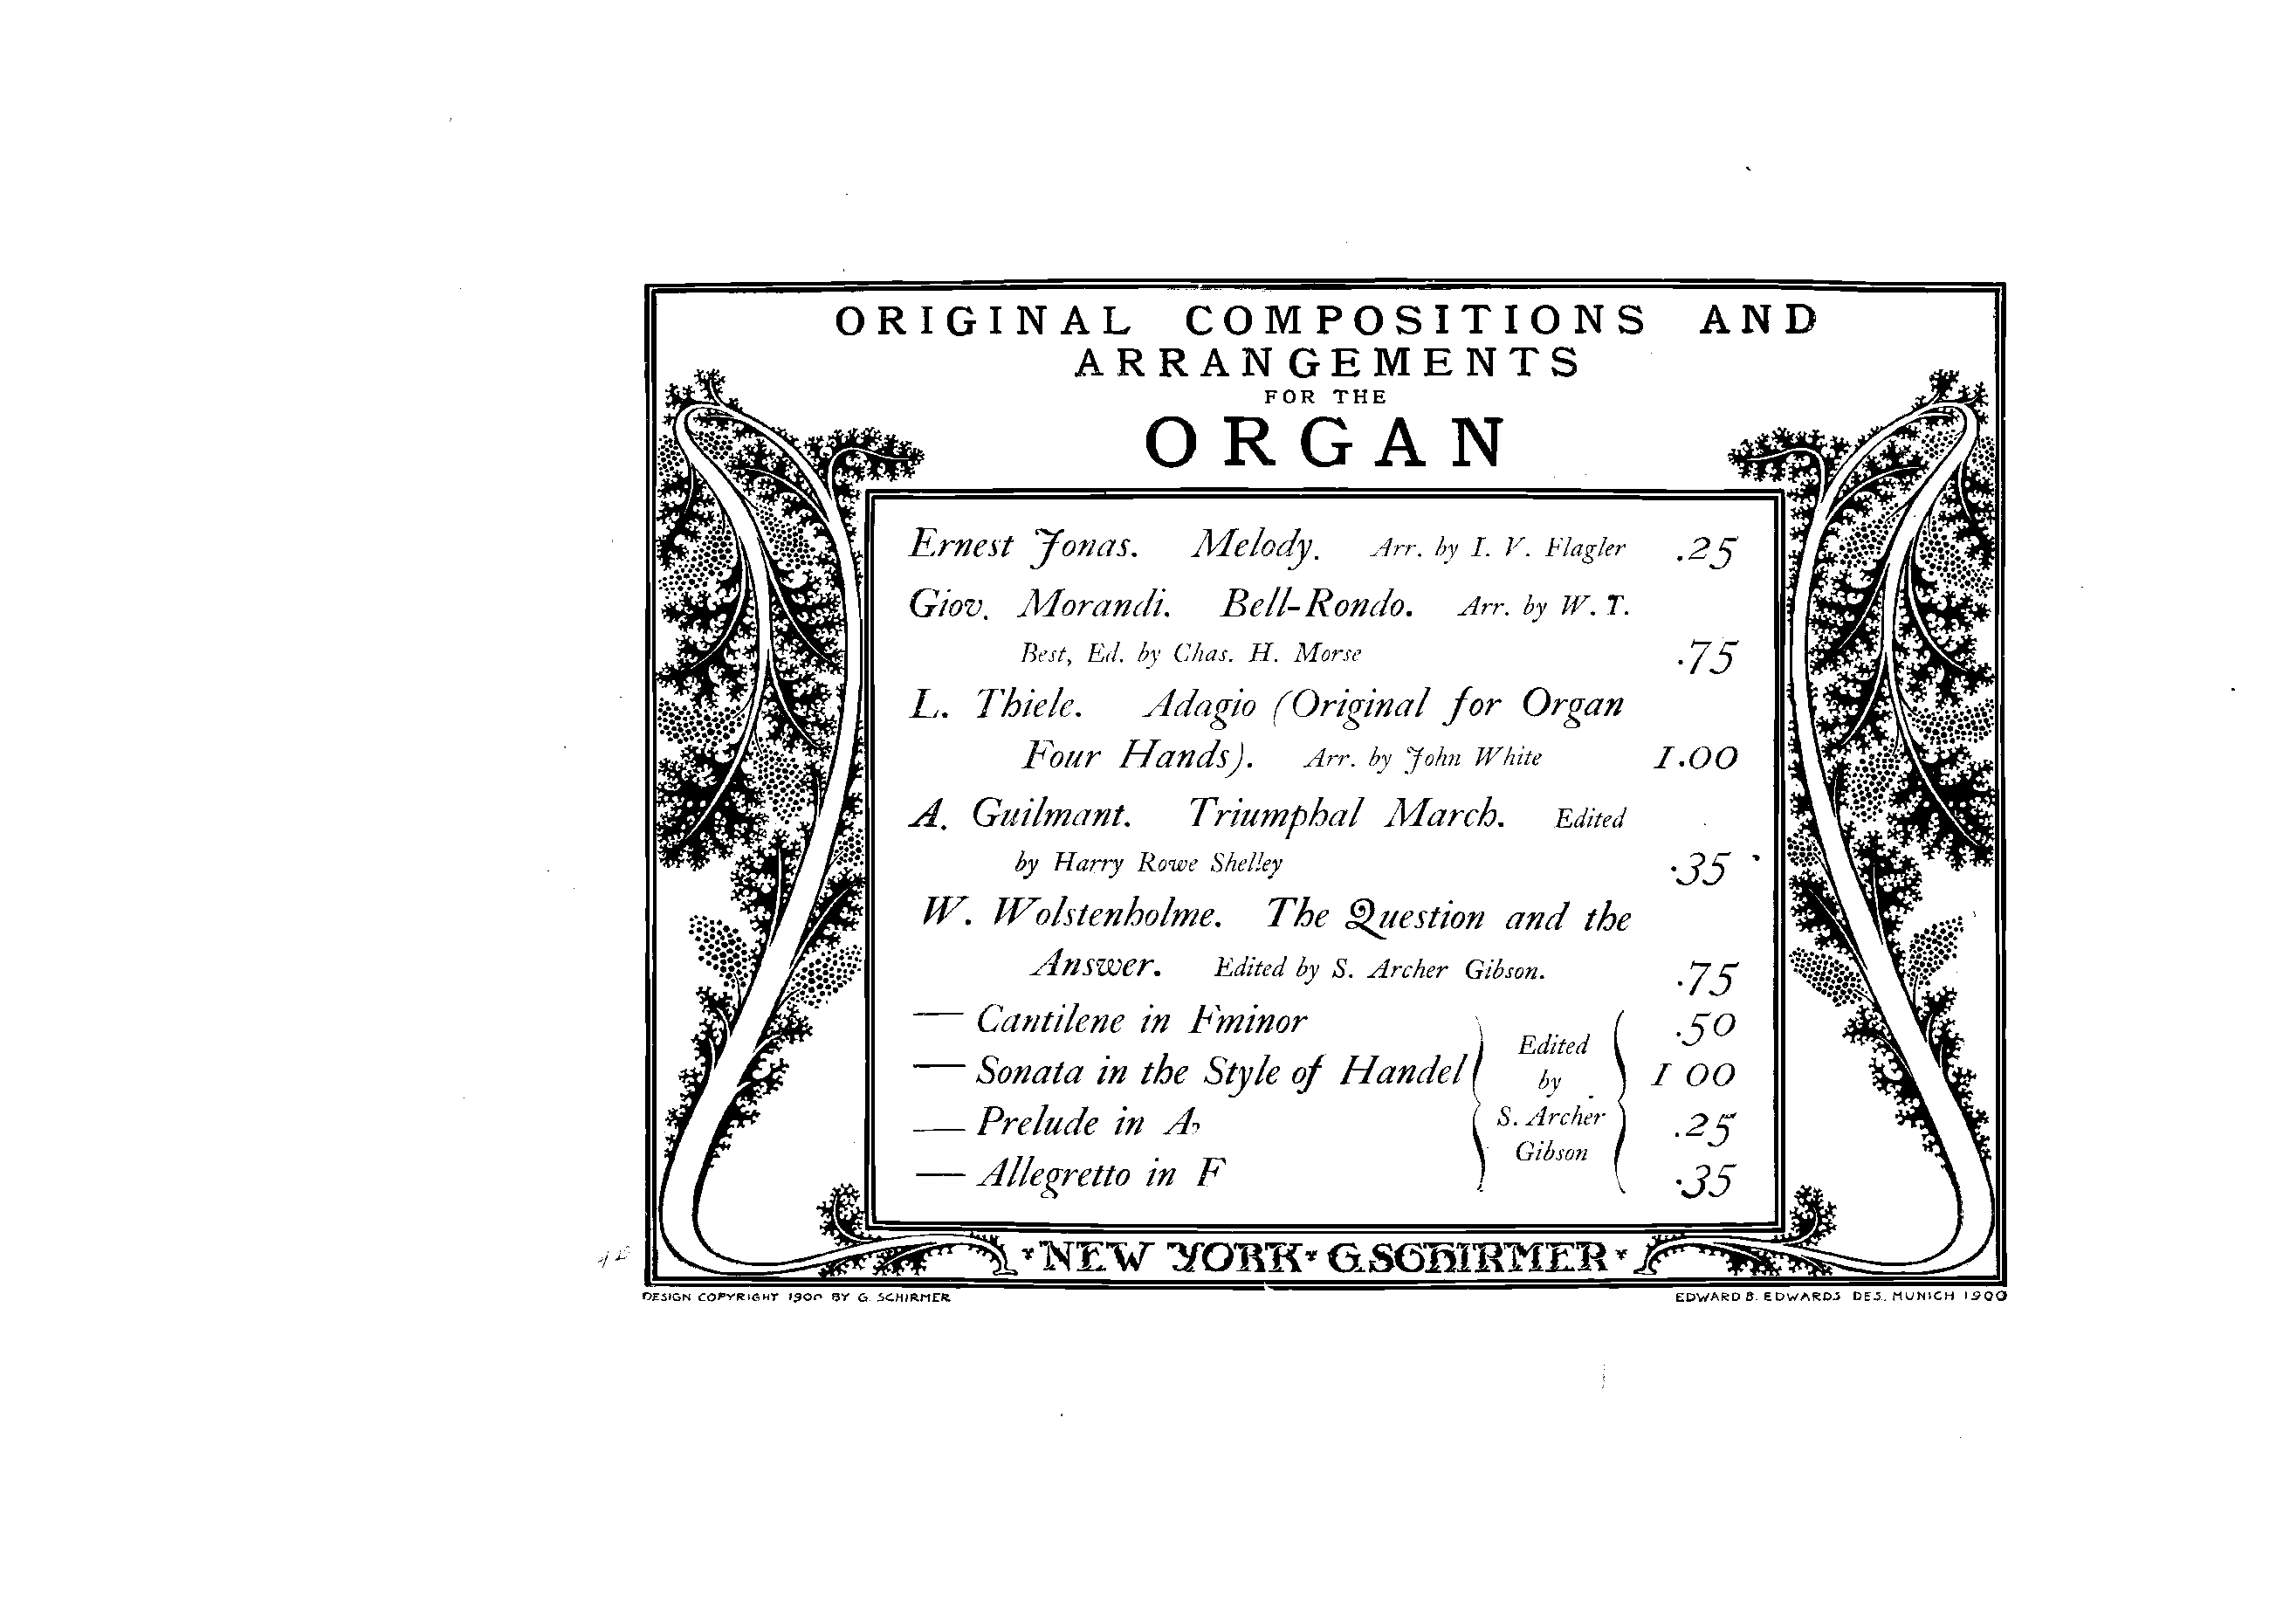 ORIGINAL COMPOSITIONS AND
ARRANGEMENTS
FOR THE
ORGAN
Ernest Jonas. Melody. Arr. by I. V. Flagler .25
Giov. Morandi. Bell-Rondo. Arr. by W. T.
Best, Ed. by Chas. H. Morse .75
L. Thiele. Adagio (Original for Organ
Four Hands). Arr. by John White 1.00
A. Guilmant. Triumphal March. Edited
by Harry Rowe Shelley .35
W. Wolstenholme. The Question and the
Answer. Edited by S. Archer Gibson. .75
— Cantilene in F minor .50
— Sonata in the Style of Handel 1 00
— Prelude in A♭ .25
— Allegretto in F .35
Edited
by
S. Archer
Gibson
NEW YORK · G. SCHIRMER
DESIGN COPYRIGHT 1900 BY G. SCHIRMER
EDWARD B. EDWARDS DES. MUNICH 1900